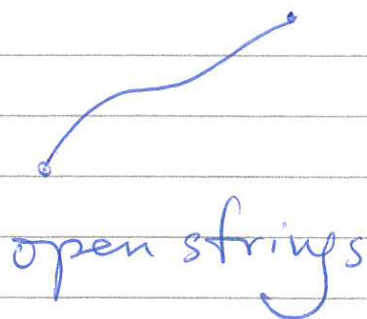 open strings